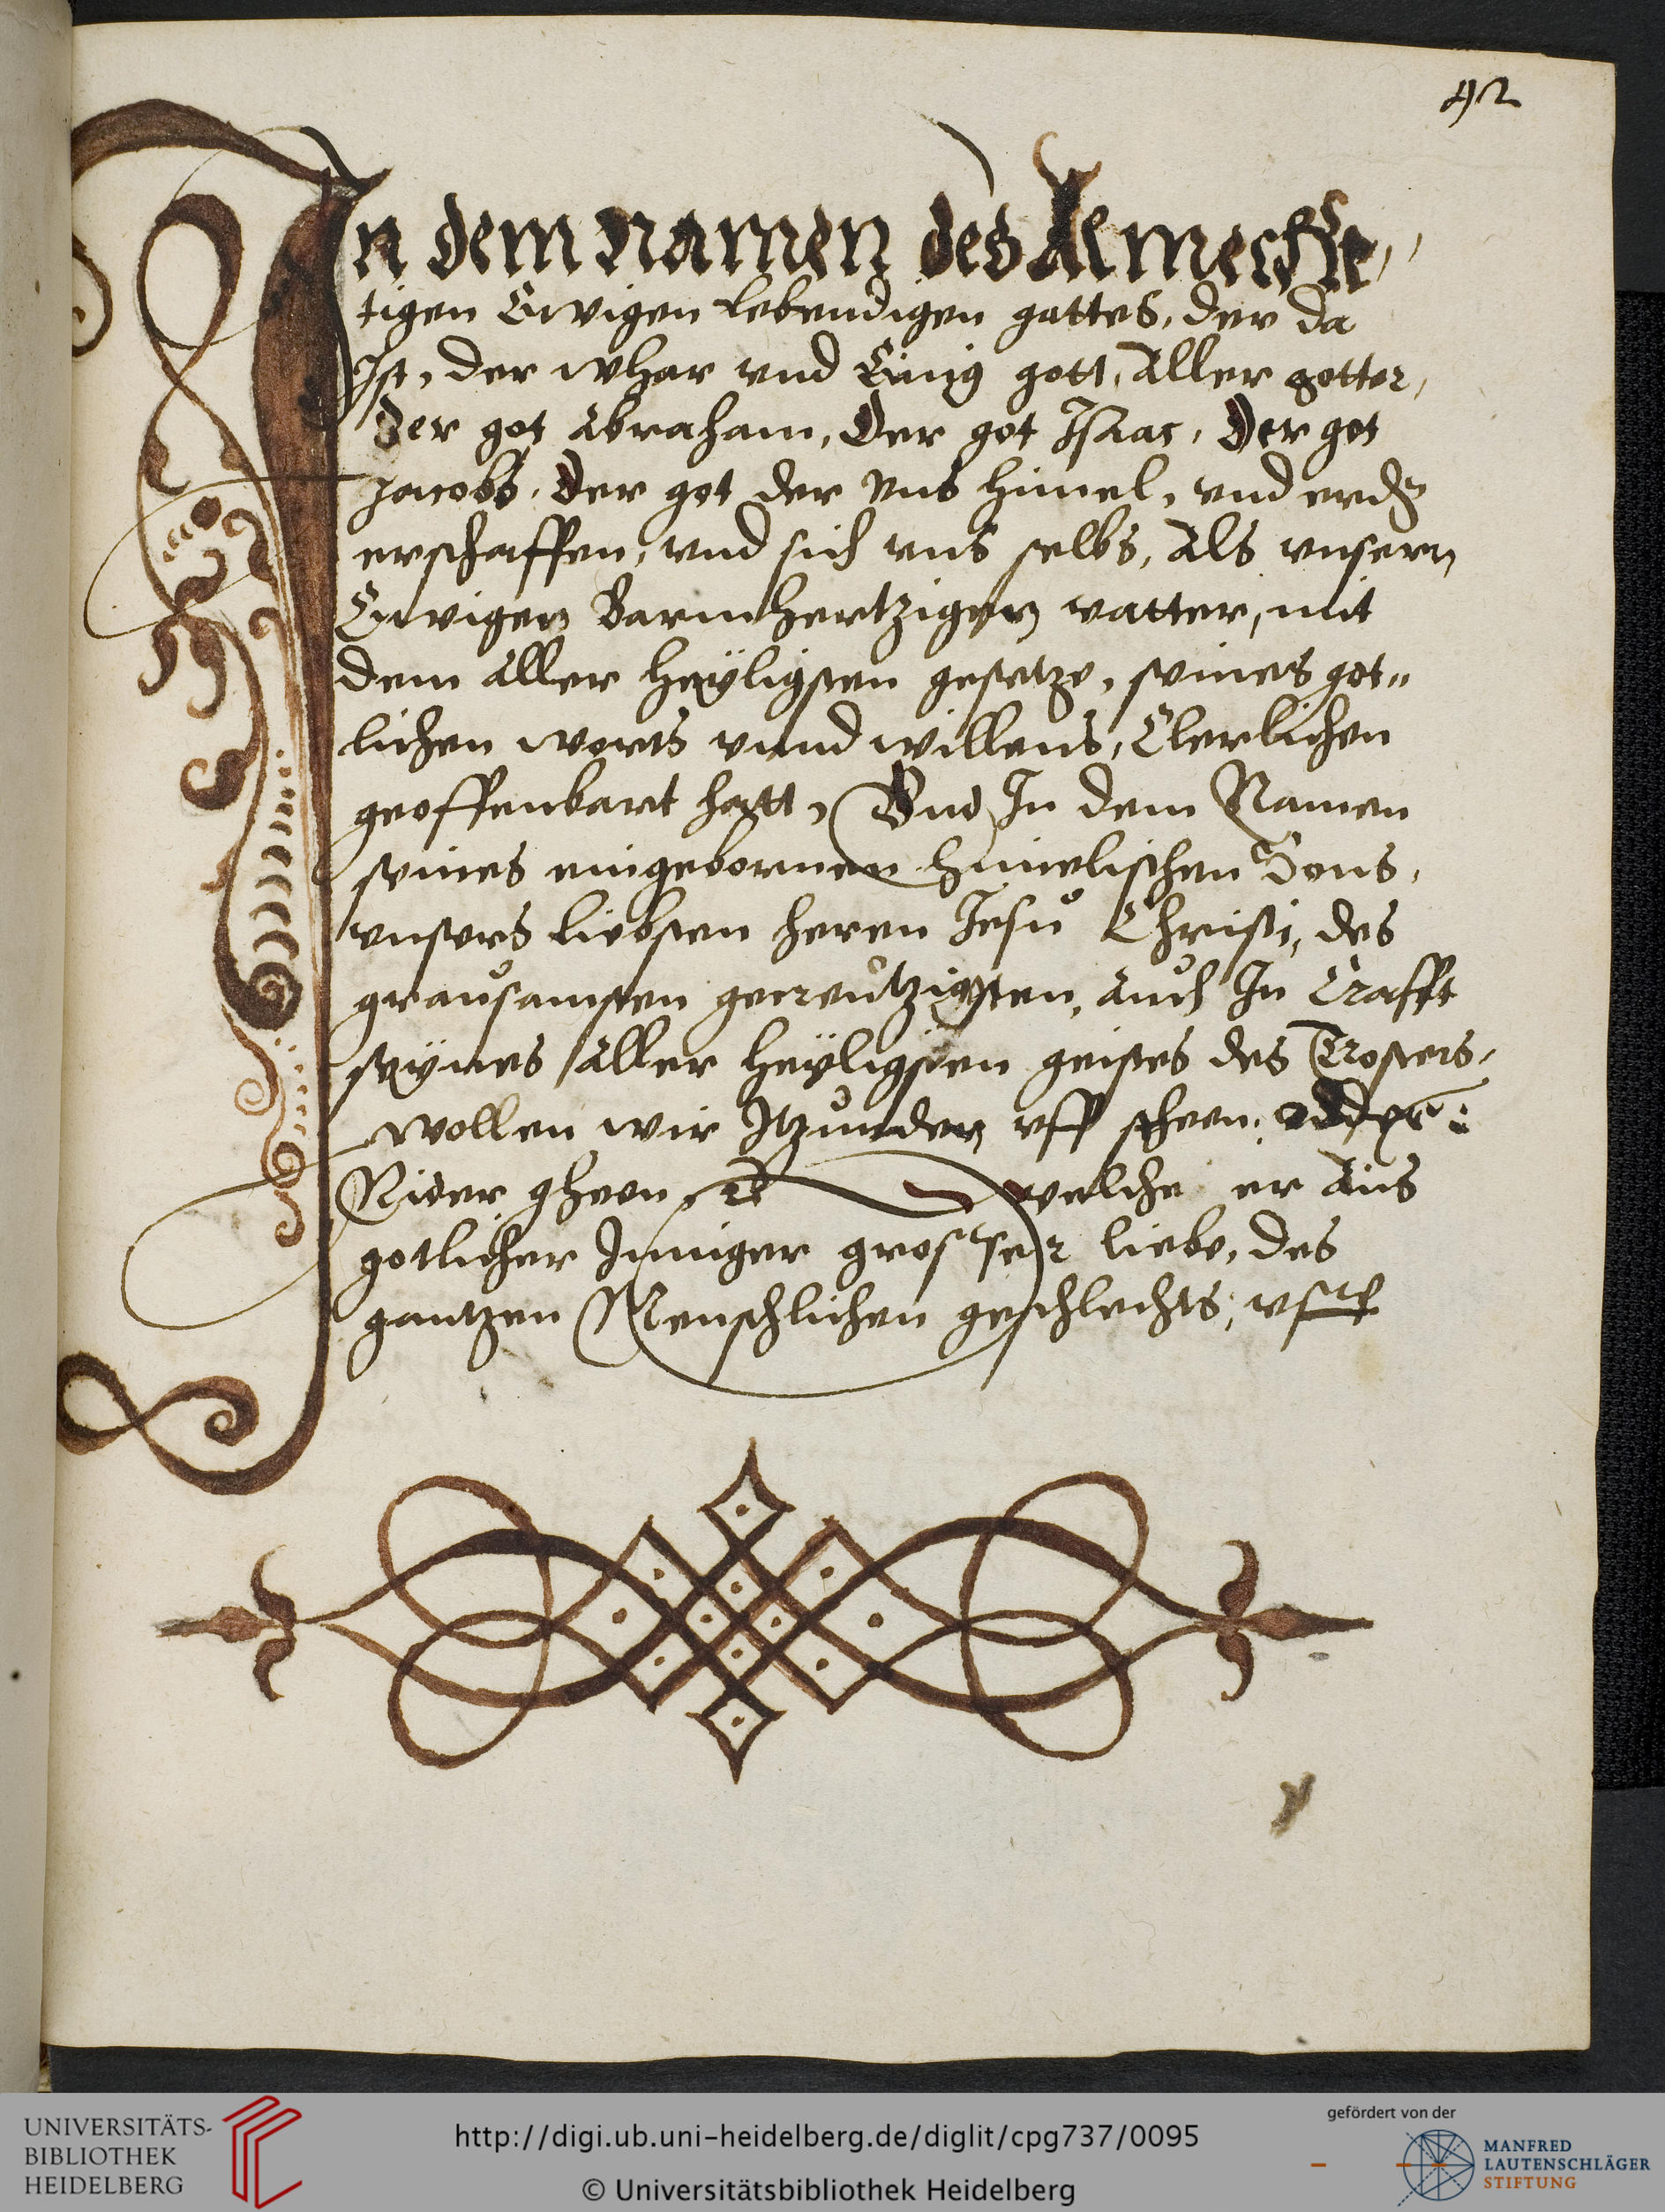 42
In dem namen des Almechte,,
tigen Ewigen lebendigen gottes, der da
Ist, der whar vnd Einig gott, Aller gotter,
Der got Abraham, Der got Isaac, Der got
Jacobs, Der got der vns himel, vnd erdē
erschaffen, vnd sich vns selbs, Als vnsern
Ewigen Barmhertzigen vatter, mit
dem Aller heÿligsten gesetze, seines got„
lichen worts vnnd willens, Clerlichen
geoffenbart hatt, Vnd In dem Namen
seines eingebornen himelischen Sons,
vnsers liebsten heren Jesu Christi, des
grausamsten gecreutzigsten, Auch In Crafft
seÿnes Aller heÿligsten geistes des Trosters,
wollen wir Itzunder vff steen, odder:
Nider gheen, welche er Aus
gotlicher Inniger grosser liebe, des
gantzen Menschlichen geschlechts,
UNIVERSITÄTS-
BIBLIOTHEK
HEIDELBERG
http://digi.ub.uni-heidelberg.de/diglit/cpg737/0095
© Universitätsbibliothek Heidelberg
gefördert von der
MANFRED
LAUTENSCHLÄGER
STIFTUNG